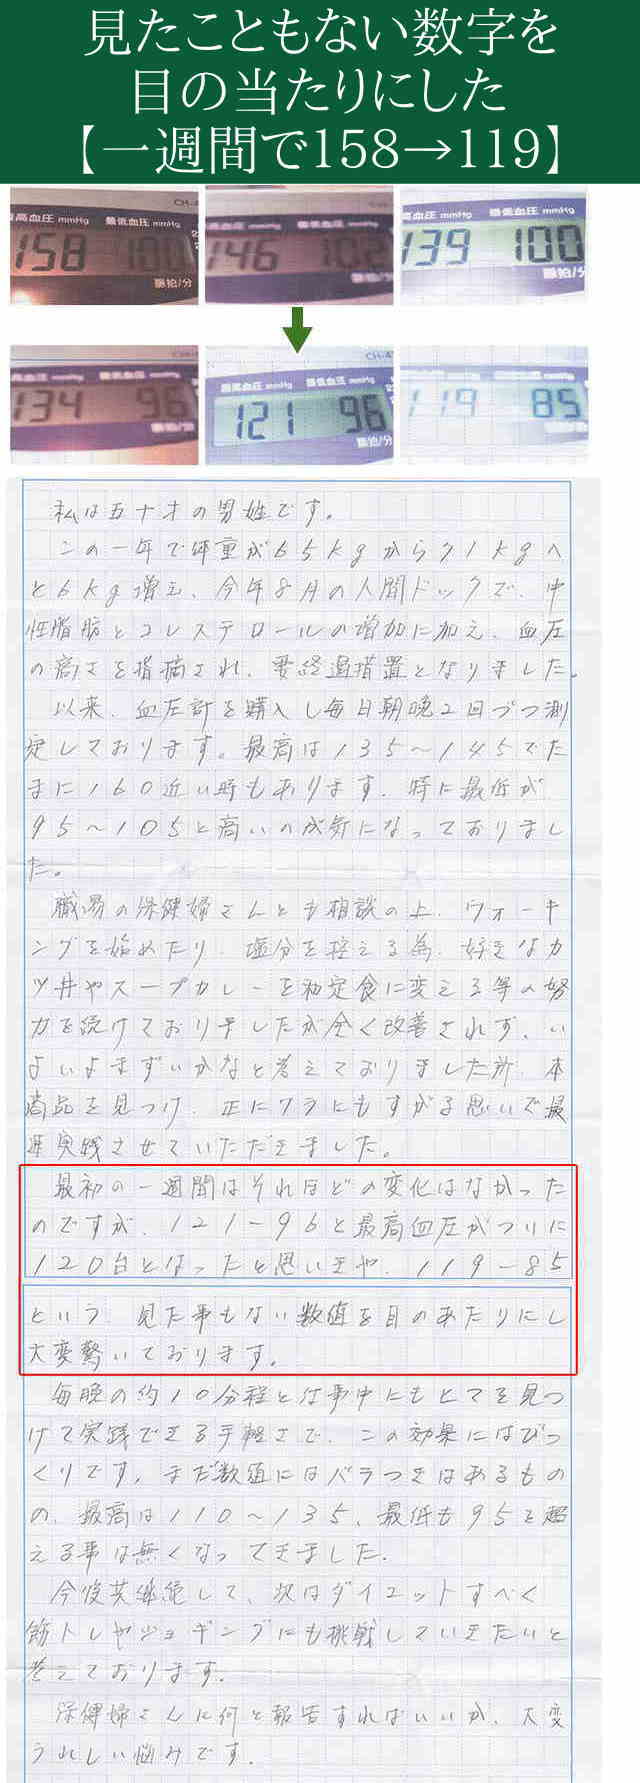 見たこともない数字を
目の当たりにした
【一週間で158→119】
最高血圧 mmHg 最低血圧 mmHg
158 100
脈拍/分
146 102
脈拍/分
最高血圧 mmHg 最低血圧 mmHg
139 100
脈拍/分
134 96
脈拍/分
最高血圧 mmHg 最低血圧 mmHg
121 96
脈拍/分
119 85
脈拍/分
私は五十才の男姓です。
この一年で体重が65kgから71kgへ
と6kg増え、今年8月の人間ドックで、中
性脂肪とコレステロールの増加に加え、血圧
の高さを指摘され、要経過措置となりました。
以来、血圧計を購入し毎日朝晩2回づつ測
定しております。最高は135〜145でた
まに160近い時もあります。特に最低が
95〜105と高いのが気になっておりまし
た。
職場の保健婦さんとも相談の上、ウォーキ
ングを始めたり、塩分を控える為、好きなカ
ツ丼やスープカレーを和定食に変える等の努
力を続けておりましたが全く改善されず、い
よいよまずいかなと考えておりました所、本
商品を見つけ、正にワラにもすがる思いで最
速実践させていただきました。
最初の一週間はそれほどの変化はなかった
のですが、121−96と最高血圧がついに
120台となったと思いきや、119−85
という、見た事もない数値を目のあたりにし
大変驚いております。
毎晩の約10分程と仕事中にもヒマを見つ
けて実践できる手軽さで、この効果にはびっ
くりです。まだ数値にはバラつきはあるもの
の、最高は110〜135、最低も95を超
える事は無くなってきました。
今後共継続して、次はダイエットすべく
筋トレやジョギングにも挑戦していきたいと
考えております。
保健婦さんに何と報告すればいいか、大変
うれしい悩みです。